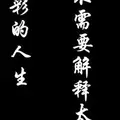 需要解释太
彩的人生